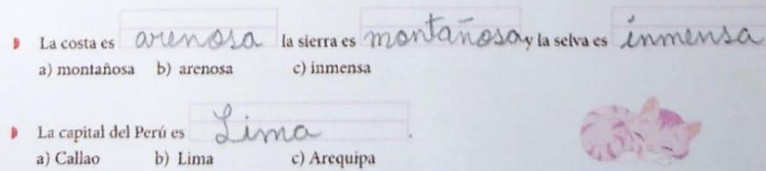 La costa es arenosa la sierra es montañosa y la selva es inmensa
a) montañosa b) arenosa c) inmensa
La capital del Perú es Lima.
a) Callao b) Lima c) Arequipa